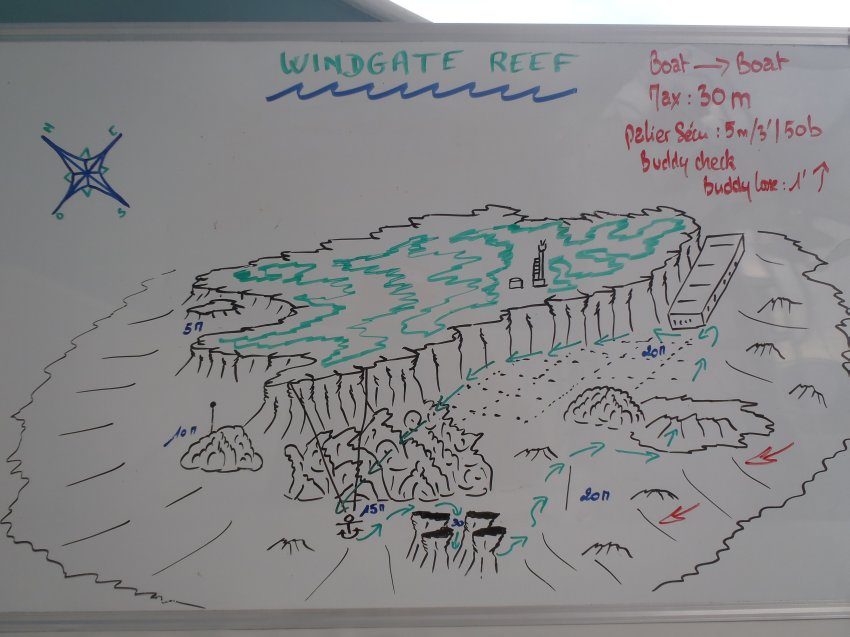 WINDGATE REEF
Boat → Boat
Max : 30 m
palier Sécu : 5m/3'/50b
Buddy check
Buddy lose : 1' ↑
N E
O S
5m
10m
20m
20m
15m
30